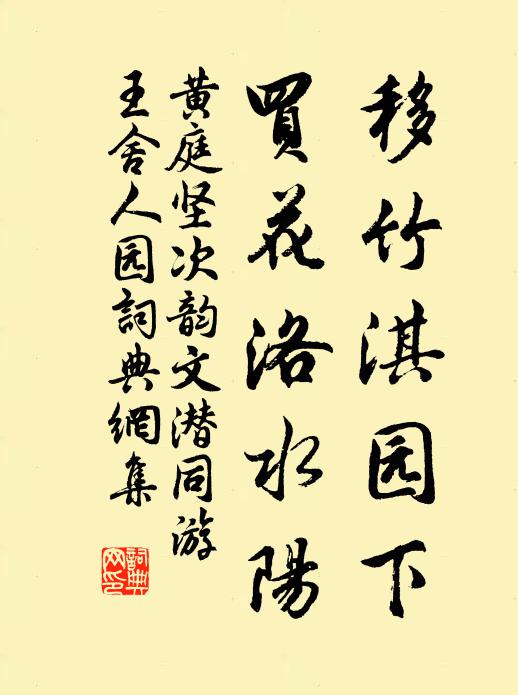 移竹淇园下
買花洛水陽
黄庭坚次韵文潜同游
王舍人园詞典網集
詞典网印